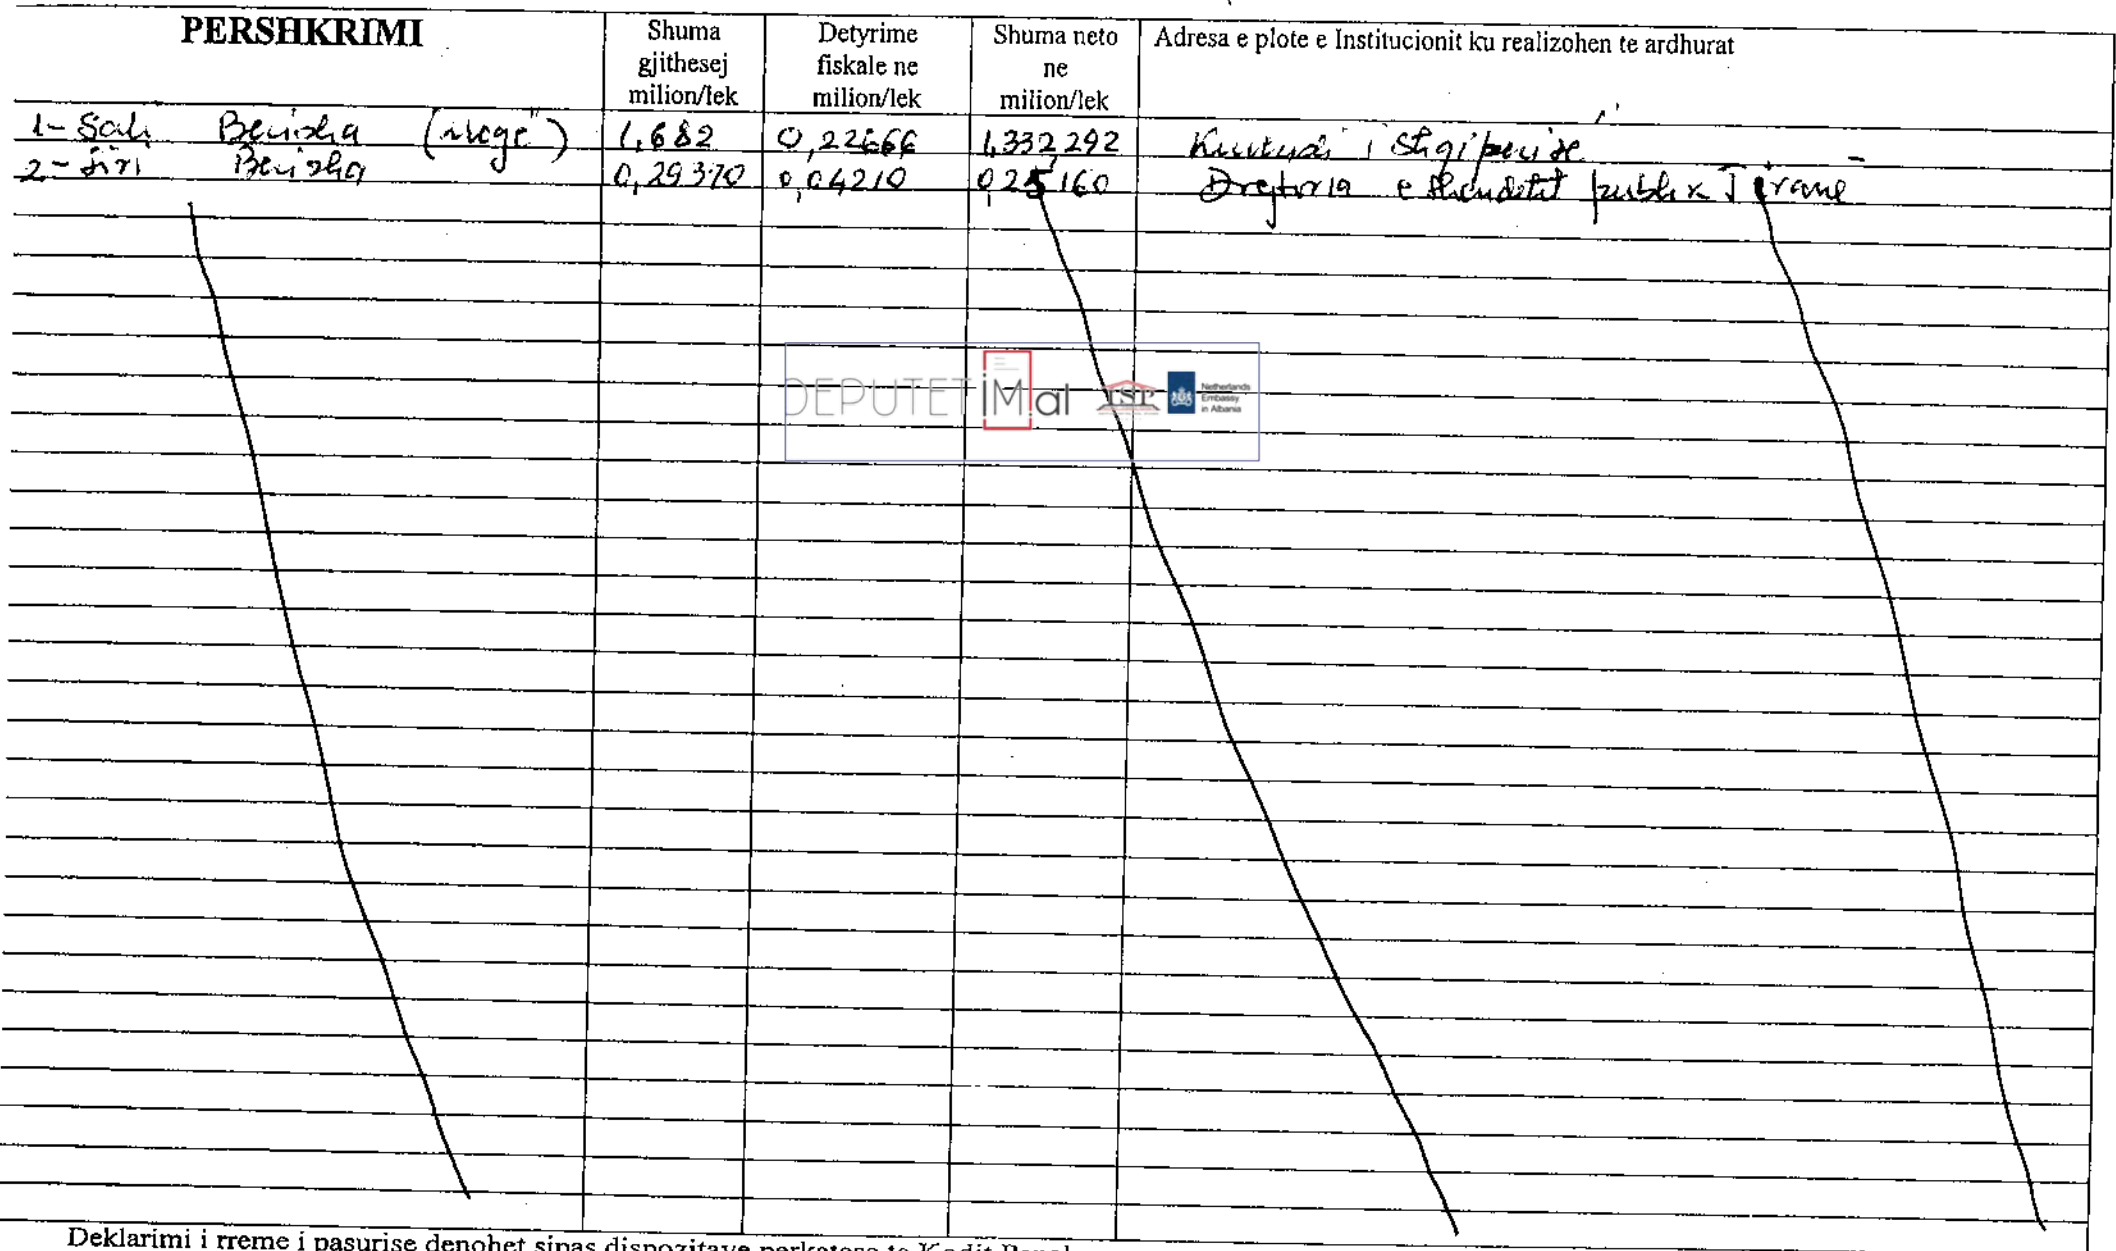 PERSHKRIMI
Shuma
gjithesej
milion/lek
Detyrime
fiskale ne
milion/lek
Shuma neto
ne
milion/lek
Adresa e plote e Institucionit ku realizohen te ardhurat
1- Sali Berisha 1,682 0,22666 1,332,292 Kuvendi i Shqiperise
2- Liri Berisha 0,29370 0,04210 0,25160 Drejtoria e Shendetit publik Tirane
DEPUTETiM.al ISP Netherlands
Embassy
in Albania
Deklarimi i rreme i pasurise denohet sipas dispozitave perkatese te Kodit Penal